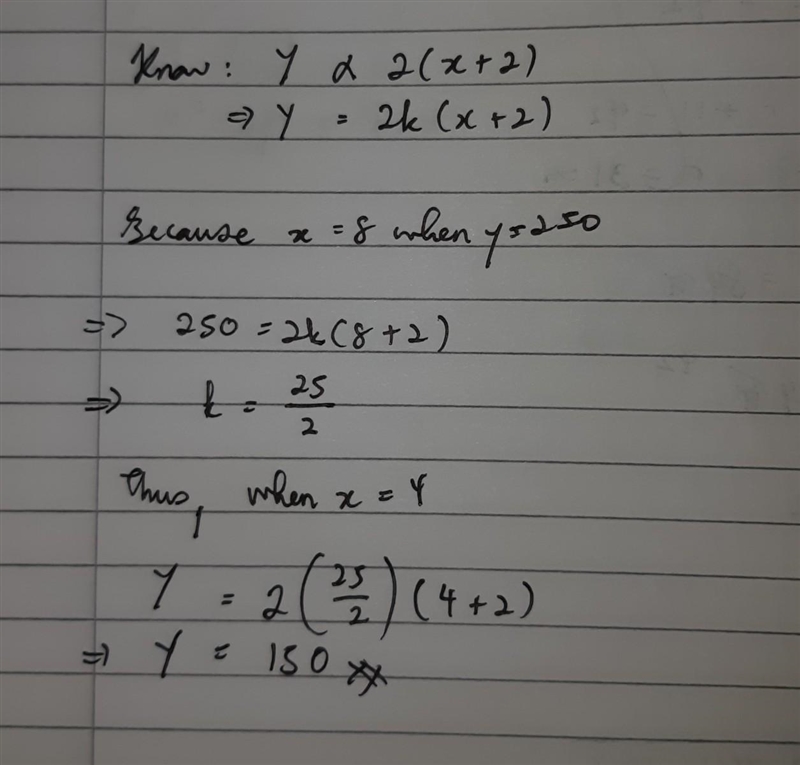 Know: Y α 2(x+2)
⇒ Y = 2k(x+2)
Because x = 8 when y=250
⇒ 250 = 2k(8+2)
⇒ k = 25/2
Thus, when x = 4
Y = 2(25/2)(4+2)
⇒ Y = 150